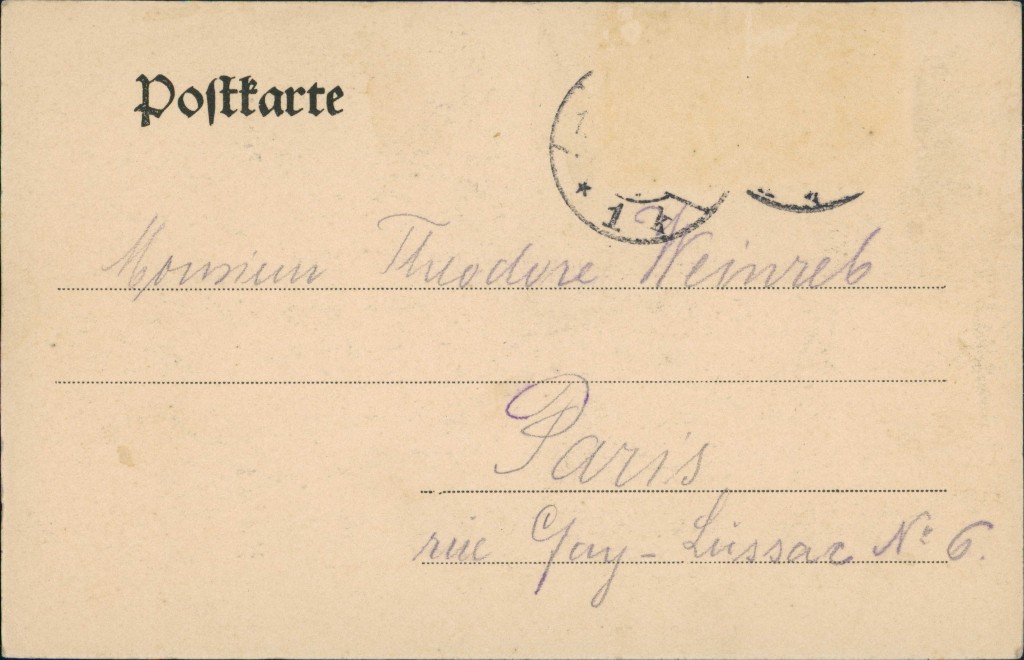 Postkarte
1 k
Monsieur Theodore Weinreb
Paris
rue Gay-Lussac No 6.